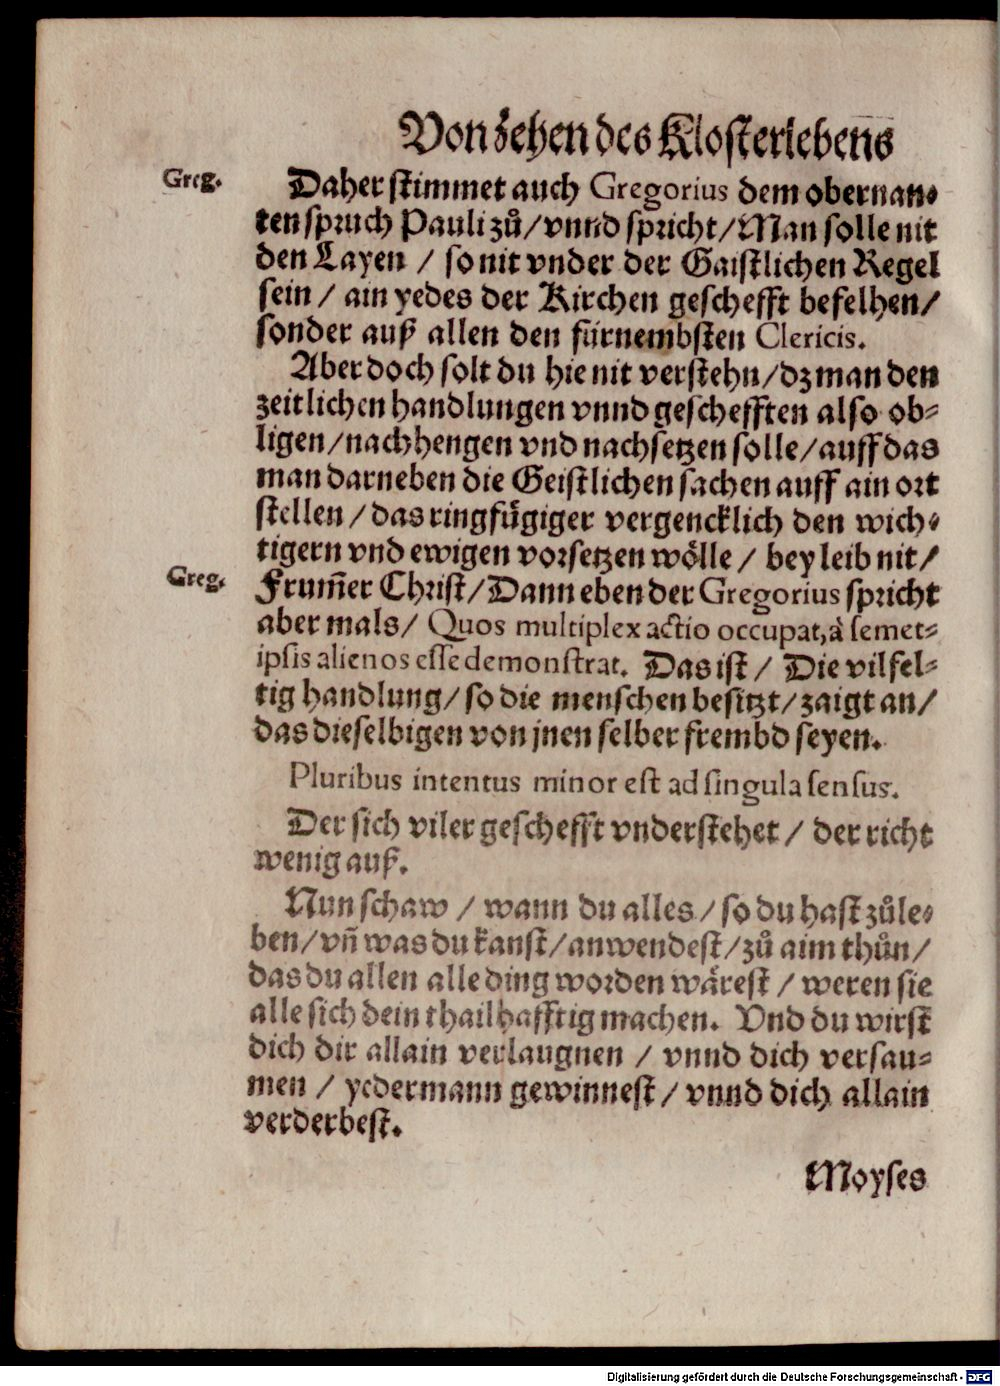 Von zehen des Klosterlebens
Greg. Daher stimmet auch Gregorius dem obernan-
ten spruch Pauli zů/ vnnd spricht/ Man solle nit
den Layen / so nit vnder der Gaistlichen Regel
sein / ain yedes der Kirchen geschefft befelhen/
sonder auß allen den fürnembsten Clericis.
Aber doch solt du hie nit verstehn/ dz man den
zeitlichen handlungen vnnd geschefften also ob-
ligen/ nachhengen vnd nachsetzen solle/ auff das
man darneben die Geistlichen sachen auff ain ort
stellen / das ringfůgiger vergencklich den wich-
tigern vnd ewigen vorsetzen wölle / bey leib nit/
Greg. Frum̃er Christ/ Dann eben der Gregorius spricht
aber mals/ Quos multiplex actio occupat, à semet-
ipsis alienos esse demonstrat. Das ist / Die vilfel-
tig handlung/ so die menschen besitzt/ zaigt an/
das dieselbigen von jnen selber frembd seyen.
Pluribus intentus minor est ad singula sensus.
Der sich viler geschefft vnderstehet / der richt
wenig auß.
Nun schaw / wann du alles / so du hast zůle-
ben/ vñ was du kanst/ anwendest/ zů aim thůn/
das du allen alle ding worden wärest / weren sie
alle sich dein thailhafftig machen. Vnd du wirst
dich dir allain verlaugnen / vnnd dich versau-
men / yedermann gewinnest / vnnd dich allain
verderbest.
Moyses
Digitalisierung gefördert durch die Deutsche Forschungsgemeinschaft - DFG